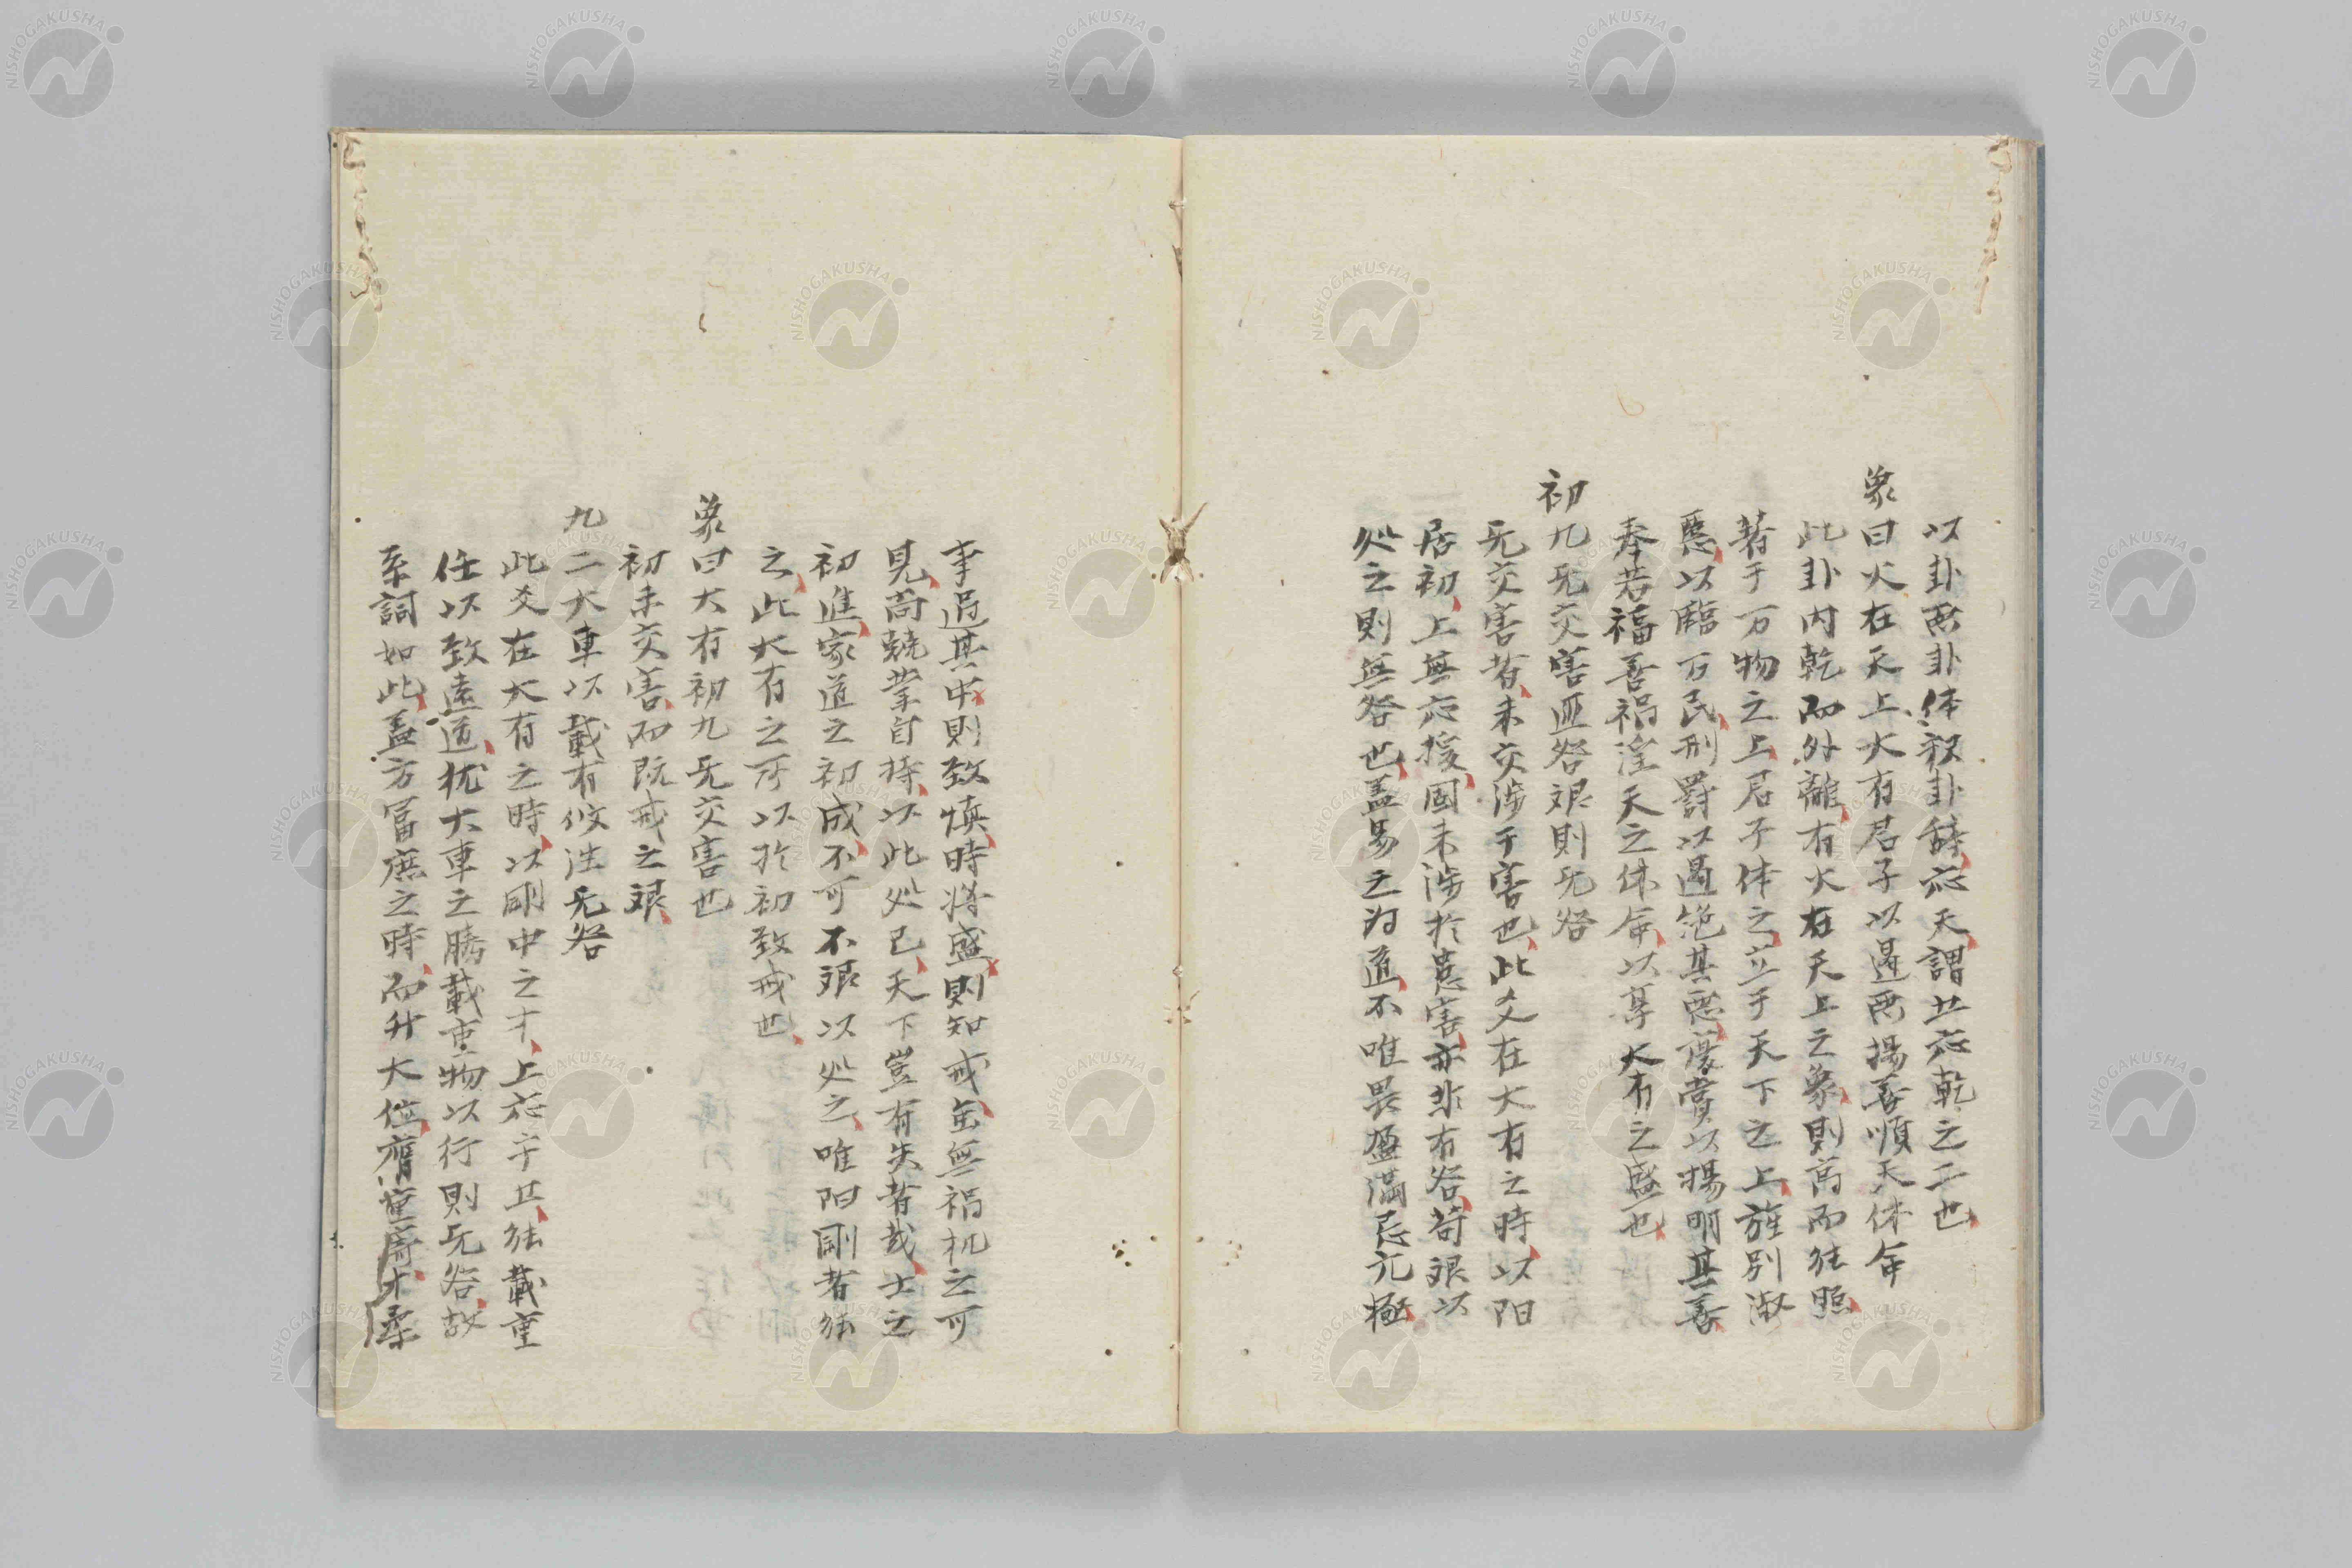 以卦両卦体釈卦辞応天謂五応乾之二也
象曰火在天上大有君子以遏悪揚善順天休命
此卦内乾而外離有火在天上之象則高而能照
著于万物之上君子体之立于天下之上旌別淑
慝以臨万民刑罰以遏絶其悪慶賞以揚明其善
奉若福善禍淫天之休命以享大有之盛也
初九无交害匪咎艱則无咎
无交害者未交渉于害也此爻在大有之時以陽
居初上無応援固未渉於患害亦非有咎苟艱以
処之則無咎也蓋易之為道不唯畏盈満忌亢極
事過其中則致慎時将盛則知戒曽無禍机之可
見而兢業自持以此処己天下豈有失者哉士之
初進家道之初成不可不艱以処之唯陽剛者能
之此大有之所以於初致戒也
象曰大有初九无交害也
初未交害而既戒之艱
九二大車以載有攸往无咎
此爻在大有之時以剛中之才上応于五能載重
任以致遠道犹大車之勝載重物以行則无咎故
系詞如此蓋方富庶之時而升大位膺重寄才柔
NISHOGAKUSHA